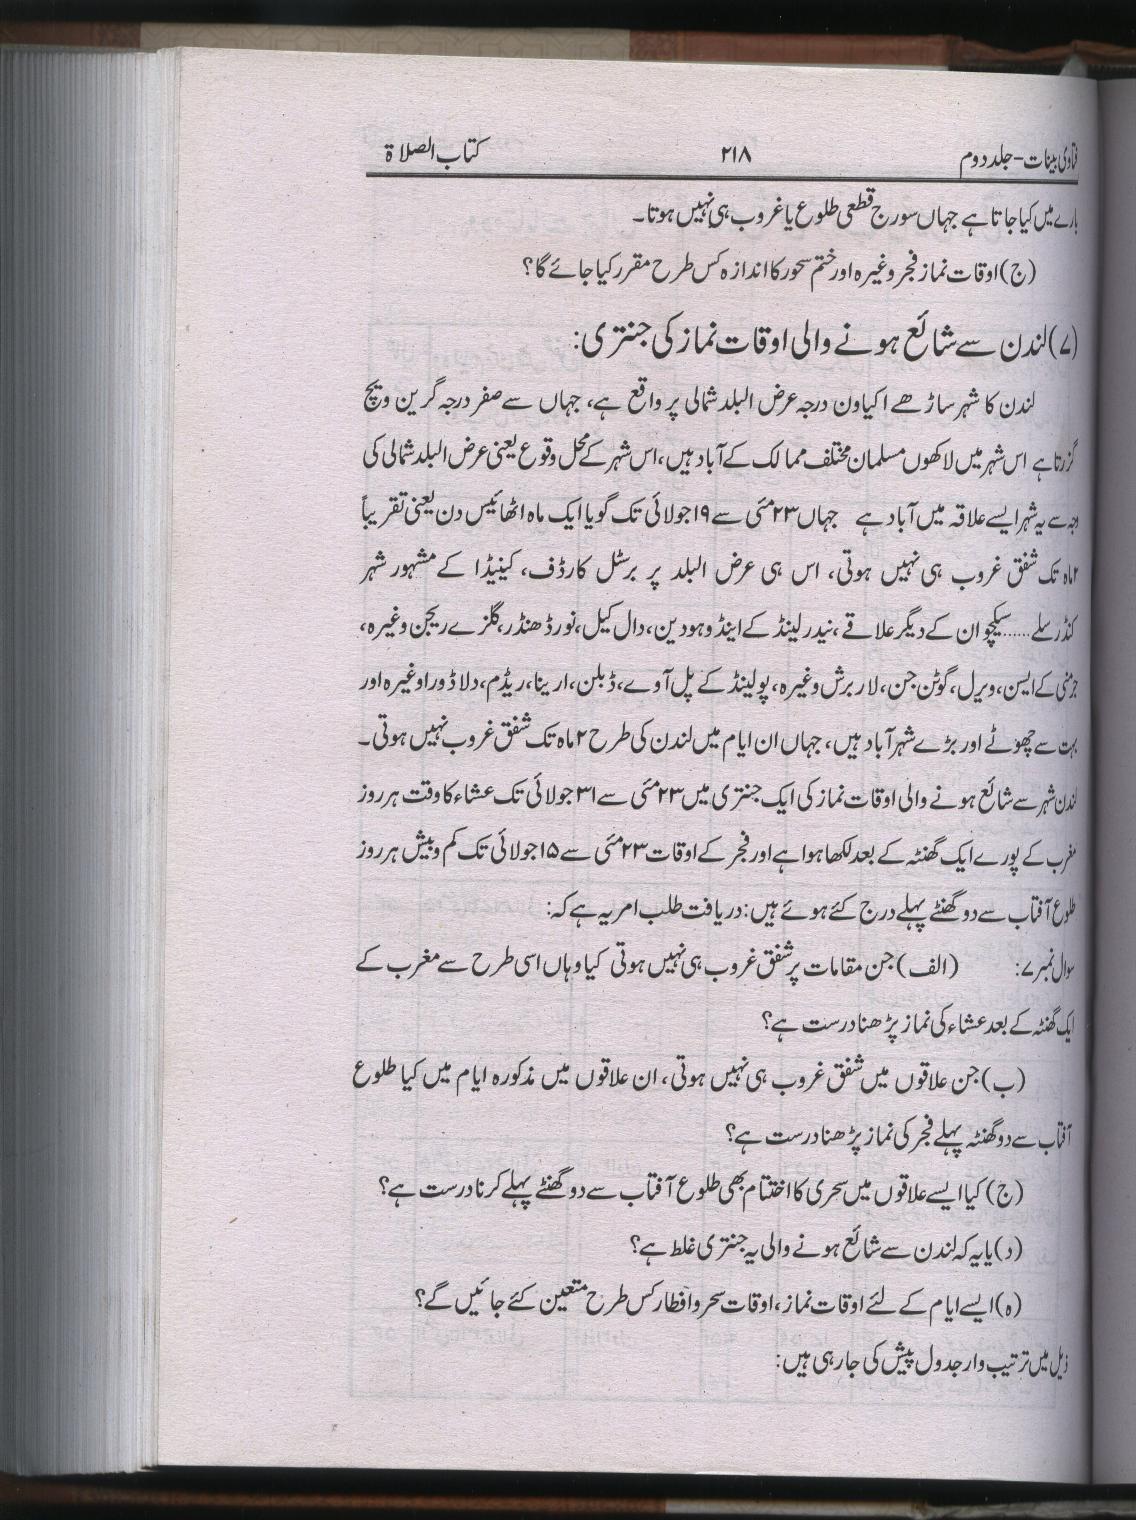 فتاویٰ بینات - جلد دوم ۲۱۸ کتاب الصلاۃ
بارے میں کیا جاتا ہے جہاں سورج قطعی طلوع یا غروب ہی نہیں ہوتا۔
(ج) اوقات نماز فجر وغیرہ اور ختم سحور کا اندازہ کس طرح مقرر کیا جائے گا؟
(۷) لندن سے شائع ہونے والی اوقات نماز کی جنتری:
لندن کا شہر ساڑھے اکیاون درجہ عرض البلد شمالی پر واقع ہے، جہاں سے صفر درجہ گرین ویچ
گزرتا ہے اس شہر میں لاکھوں مسلمان مختلف ممالک کے آباد ہیں، اس شہر کے محل وقوع یعنی عرض البلد شمالی کی
وجہ سے یہ شہر ایسے علاقہ میں آباد ہے جہاں ۲۳ مئی سے ۱۹ جولائی تک گویا ایک ماہ اٹھائیس دن یعنی تقریباً
۲ ماہ تک شفق غروب ہی نہیں ہوتی، اس ہی عرض البلد پر برسٹل کارڈف، کینیڈا کے مشہور شہر
کنڈرسلے......سیکچو ان کے دیگر علاقے، نیدر لینڈ کے اینڈ وہودین، دال کیل، نورڈھنڈر، گلزے ریجن وغیرہ،
جرمنی کے ایسن، ویرل، گوٹن جن، لار برش وغیرہ، پولینڈ کے پل آوے، ڈبلن، ارینا، ریڈم، دلاڈورا وغیرہ اور
بہت سے چھوٹے اور بڑے شہر آباد ہیں، جہاں ان ایام میں لندن کی طرح ۲ ماہ تک شفق غروب نہیں ہوتی۔
لندن شہر سے شائع ہونے والی اوقات نماز کی ایک جنتری میں ۲۳ مئی سے ۳۱ جولائی تک عشاء کا وقت ہر روز
مغرب کے پورے ایک گھنٹہ کے بعد لکھا ہوا ہے اور فجر کے اوقات ۲۳ مئی سے ۱۵ جولائی تک کم و بیش ہر روز
طلوع آفتاب سے دو گھنٹے پہلے درج کئے ہوئے ہیں: دریافت طلب امر یہ ہے کہ:
سوال نمبر ۷: (الف) جن مقامات پر شفق غروب ہی نہیں ہوتی کیا وہاں اسی طرح سے مغرب کے
ایک گھنٹہ کے بعد عشاء کی نماز پڑھنا درست ہے؟
(ب) جن علاقوں میں شفق غروب ہی نہیں ہوتی، ان علاقوں میں مذکورہ ایام میں کیا طلوع
آفتاب سے دو گھنٹہ پہلے فجر کی نماز پڑھنا درست ہے؟
(ج) کیا ایسے علاقوں میں سحری کا اختتام بھی طلوع آفتاب سے دو گھنٹے پہلے کرنا درست ہے؟
(د) یا یہ کہ لندن سے شائع ہونے والی یہ جنتری غلط ہے؟
(ہ) ایسے ایام کے لئے اوقات نماز، اوقات سحر و افطار کس طرح متعین کئے جائیں گے؟
ذیل میں ترتیب وار جدول پیش کی جا رہی ہیں: